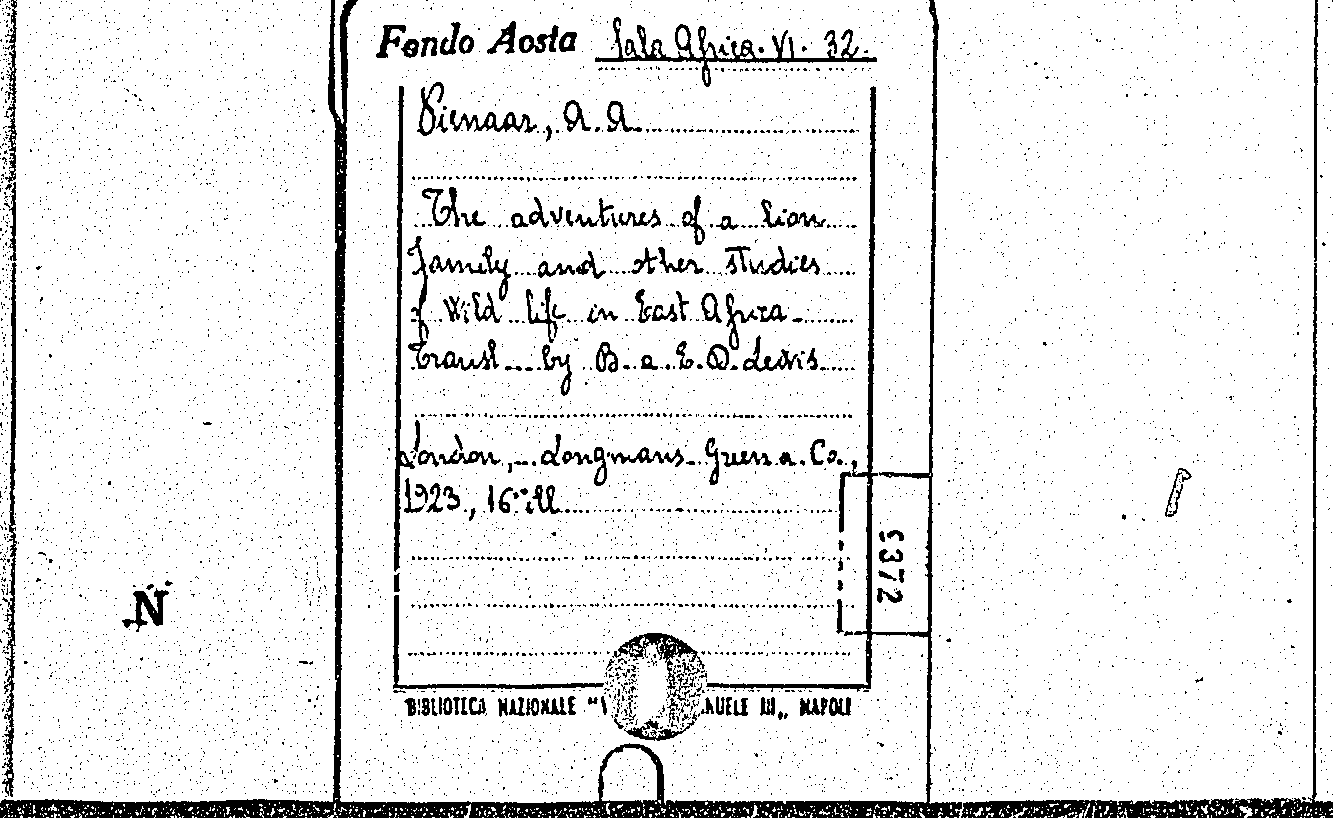 Fondo Aosta Sala Africa. VI. 32.
Pienaar, A. A.
The adventures of a lion
family and other studies
of Wild life in East Africa -
Transl. by B. a. E. D. Lewis
London, Longmans Green a. Co.,
1923, 16° ill.
5372
N
BIBLIOTECA NAZIONALE "V NUELE III„ NAPOLI